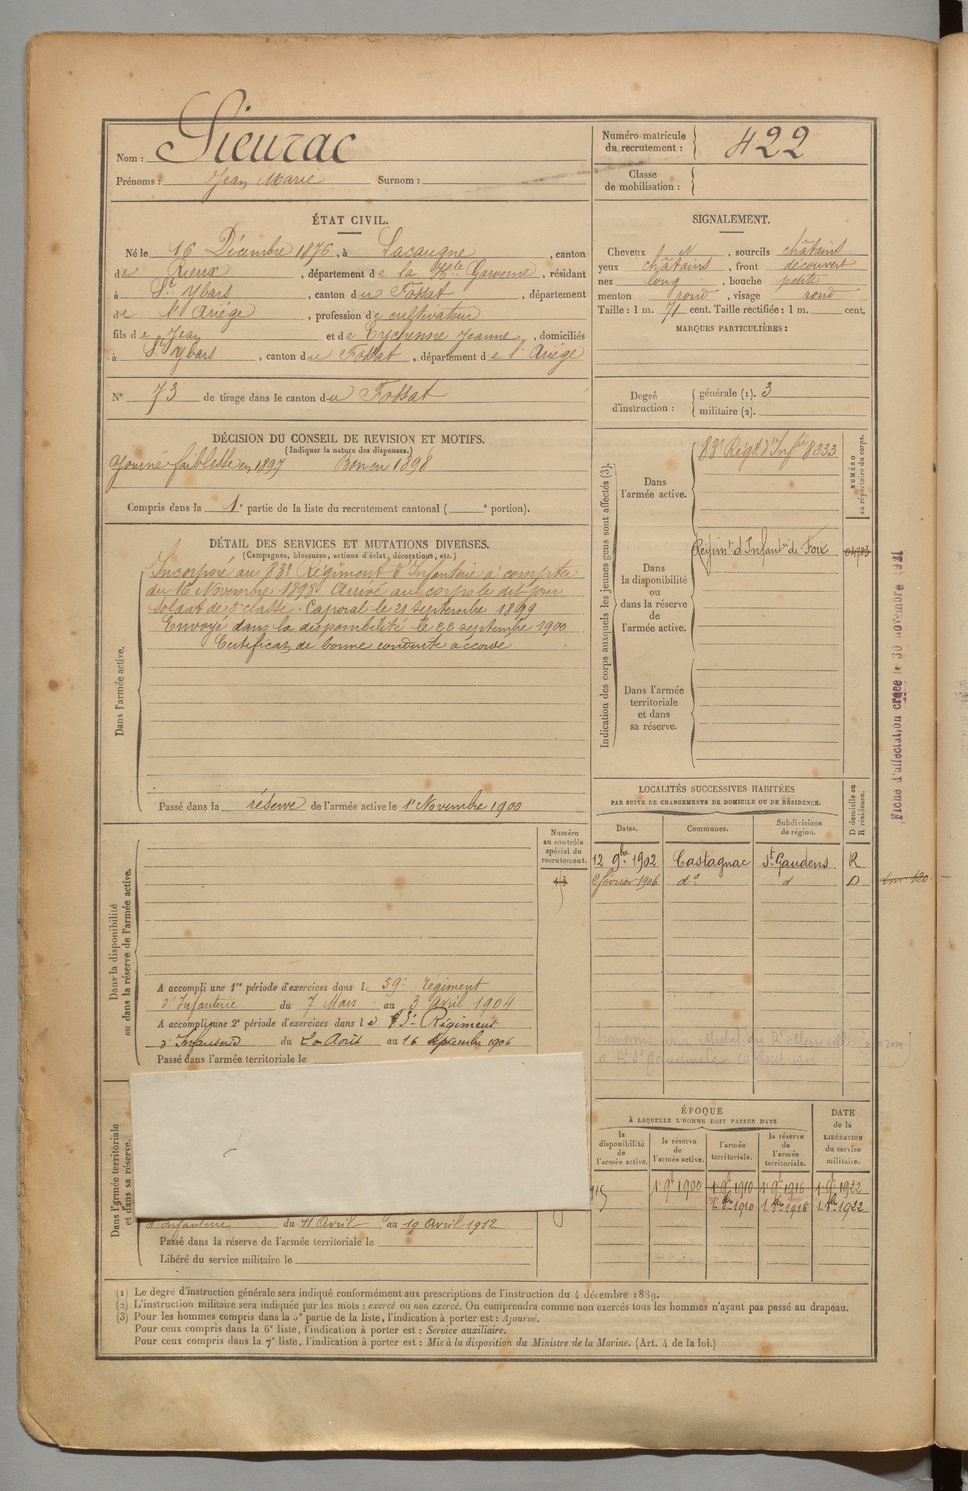 Nom : Sieuzac
Prénoms : Jean Marie Surnom :
Numéro matricule du recrutement : 422
Classe de mobilisation :
ÉTAT CIVIL.
Né le 16 Décembre 1876, à Lacaugne, canton
de Rieux, département de la Hte Garonne, résidant
à St Ybars, canton du Fossat, département
de l'Ariège, profession de cultivateur
fils de Jean et de Eychenne Jeanne, domiciliés
à St Ybars, canton du Fossat, département de l'Ariège
N° 73 de tirage dans le canton du Fossat
SIGNALEMENT.
Cheveux N, sourcils châtains
yeux châtains, front découvert
nez long, bouche petite
menton rond, visage rond
Taille : 1 m. 71 cent. Taille rectifiée : 1 m. cent.
MARQUES PARTICULIÈRES :
Degré d'instruction : générale (1). 3
militaire (2).
DÉCISION DU CONSEIL DE REVISION ET MOTIFS.
(Indiquer la nature des dispenses.)
Ajourné faiblesse en 1897 Bon en 1898
Compris dans la 1e partie de la liste du recrutement cantonal ( e portion).
DÉTAIL DES SERVICES ET MUTATIONS DIVERSES.
(Campagnes, blessures, actions d'éclat, décorations, etc.)
Dans l'armée active.
Incorporé au 83e Régiment d'Infanterie à compter
du 16 Novembre 1898. Arrivé au corps le dit jour
Soldat de 2e classe. Caporal le 21 septembre 1899
Envoyé dans la disponibilité le 22 septembre 1900
Certificat de bonne conduite accordé
Passé dans la réserve de l'armée active le 1er Novembre 1900
Indication des corps auxquels les jeunes gens sont affectés (3).
NUMÉRO au répertoire du corps.
Dans l'armée active.
83e Régt d'Infie 8333
Dans la disponibilité ou dans la réserve de l'armée active.
Régimt d'Infantie de Foix
Dans l'armée territoriale et dans sa réserve.
Fiche d'affectation créée le 30 novembre 1921
LOCALITÉS SUCCESSIVES HABITÉES
PAR SUITE DE CHANGEMENTS DE DOMICILE OU DE RÉSIDENCE.
D domicile ou R résidence.
Dates. Communes. Subdivisions de région.
12 9bre 1902 Castagnac St Gaudens R
2 février 1906 do d D
Dans la disponibilité ou dans la réserve de l'armée active.
Numéro au contrôle spécial du recrutement.
A accompli une 1re période d'exercices dans l 59e régiment
d'Infanterie du 7 Mars au 3 Avril 1904
A accompli une 2e période d'exercices dans le Régiment
d'Infanterie du 20 Août au 16 septembre 1906
Passé dans l'armée territoriale le
Dans l'armée territoriale et dans sa réserve.
d'Infanterie du 11 Avril au 19 Avril 1912
Passé dans la réserve de l'armée territoriale le
Libéré du service militaire le
ÉPOQUE
À LAQUELLE L'HOMME DOIT PASSER DANS
DATE de la LIBÉRATION du service militaire.
la disponibilité de l'armée active. la réserve de l'armée active. l'armée territoriale. la réserve de l'armée territoriale.
1 9e 1900 1 9e 1910 1 9e 1916 1 9e 1922
1910 1916 1922
(1) Le degré d'instruction générale sera indiqué conformément aux prescriptions de l'instruction du 4 décembre 1889.
(2) L'instruction militaire sera indiquée par les mots : exercé ou non exercé. On comprendra comme non exercés tous les hommes n'ayant pas passé au drapeau.
(3) Pour les hommes compris dans la 5e partie de la liste, l'indication à porter est : Ajourné.
Pour ceux compris dans la 6e liste, l'indication à porter est : Service auxiliaire.
Pour ceux compris dans la 7e liste, l'indication à porter est : Mis à la disposition du Ministre de la Marine. (Art. 4 de la loi.)